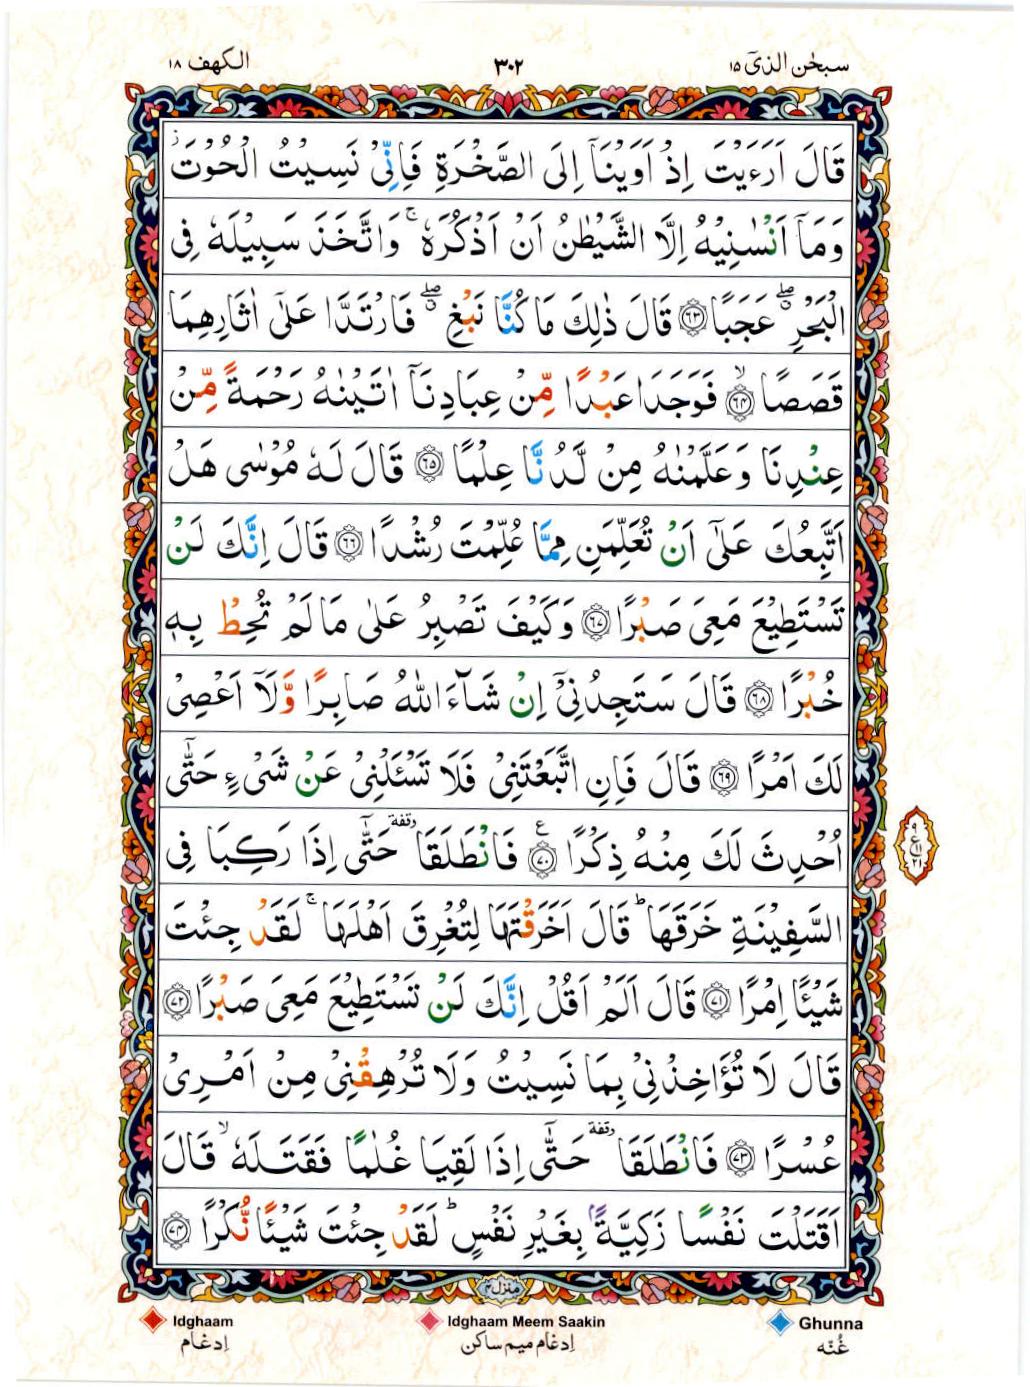 سبحٰن الذیٓ ۱۵
۳۰۲
الكهف ۱۸
قَالَ اَرَءَيْتَ اِذْ اَوَيْنَاۤ اِلَى الصَّخْرَةِ فَاِنِّىْ نَسِيْتُ الْحُوْتَ ز
وَمَاۤ اَنْسٰنِيْهُ اِلَّا الشَّيْطٰنُ اَنْ اَذْكُرَهٗ ۚ وَاتَّخَذَ سَبِيْلَهٗ فِى
الْبَحْرِ ۖ عَجَبًا ﴿۶۳﴾ قَالَ ذٰلِكَ مَا كُنَّا نَبْغِ ۖ فَارْتَدَّا عَلٰٓى اٰثَارِهِمَا
قَصَصًا ۙ﴿۶۴﴾ فَوَجَدَا عَبْدًا مِّنْ عِبَادِنَاۤ اٰتَيْنٰهُ رَحْمَةً مِّنْ
عِنْدِنَا وَعَلَّمْنٰهُ مِنْ لَّدُنَّا عِلْمًا ﴿۶۵﴾ قَالَ لَهٗ مُوْسٰى هَلْ
اَتَّبِعُكَ عَلٰٓى اَنْ تُعَلِّمَنِ مِمَّا عُلِّمْتَ رُشْدًا ﴿۶۶﴾ قَالَ اِنَّكَ لَنْ
تَسْتَطِيْعَ مَعِىَ صَبْرًا ﴿۶۷﴾ وَكَيْفَ تَصْبِرُ عَلٰى مَا لَمْ تُحِطْ بِهٖ
خُبْرًا ﴿۶۸﴾ قَالَ سَتَجِدُنِىْۤ اِنْ شَآءَ اللّٰهُ صَابِرًا وَّلَاۤ اَعْصِىْ
لَكَ اَمْرًا ﴿۶۹﴾ قَالَ فَاِنِ اتَّبَعْتَنِىْ فَلَا تَسْـَٔلْنِىْ عَنْ شَىْءٍ حَتّٰٓى
اُحْدِثَ لَكَ مِنْهُ ذِكْرًا ﴿۷۰﴾ ع فَانْطَلَقَا وقفة حَتّٰٓى اِذَا رَكِبَا فِى
۹ ع ۱۱ ۲۱
السَّفِيْنَةِ خَرَقَهَا ؕ قَالَ اَخَرَقْتَهَا لِتُغْرِقَ اَهْلَهَا ۚ لَقَدْ جِئْتَ
شَيْئًا اِمْرًا ﴿۷۱﴾ قَالَ اَلَمْ اَقُلْ اِنَّكَ لَنْ تَسْتَطِيْعَ مَعِىَ صَبْرًا ﴿۷۲﴾
قَالَ لَا تُؤَاخِذْنِىْ بِمَا نَسِيْتُ وَلَا تُرْهِقْنِىْ مِنْ اَمْرِىْ
عُسْرًا ﴿۷۳﴾ فَانْطَلَقَا وقفة حَتّٰٓى اِذَا لَقِيَا غُلٰمًا فَقَتَلَهٗ ۙ قَالَ
اَقَتَلْتَ نَفْسًا زَكِيَّةًۢ بِغَيْرِ نَفْسٍ ؕ لَقَدْ جِئْتَ شَيْئًا نُّكْرًا ﴿۷۴﴾
منزل ۴
Idghaam
Idghaam Meem Saakin
Ghunna
إدغام
إدغام ميم ساكن
غُنّه